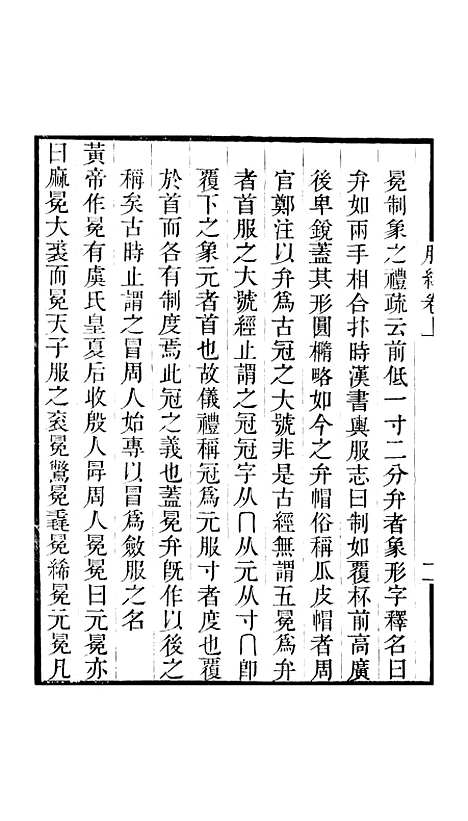 冕制象之禮疏云前低一寸二分弁者象形字釋名曰
弁如兩手相合抃時漢書輿服志曰制如覆杯前高廣
後卑銳蓋其形圓橢略如今之弁帽俗稱瓜皮帽者周
官鄭注以弁爲古冠之大號非是古經無謂五冕爲弁
者首服之大號經止謂之冠冠字从冂从元从寸冂卽
覆下之象元者首也故儀禮稱冠爲元服寸者度也覆
於首而各有制度焉此冠之義也蓋冕弁旣作以後之
稱矣古時止謂之冒周人始專以冒爲斂服之名
黃帝作冕有虞氏皇夏后收殷人冔周人冕冕曰元冕亦
曰麻冕大裘而冕天子服之袞冕鷩冕毳冕絺冕元冕凡
卷上
二